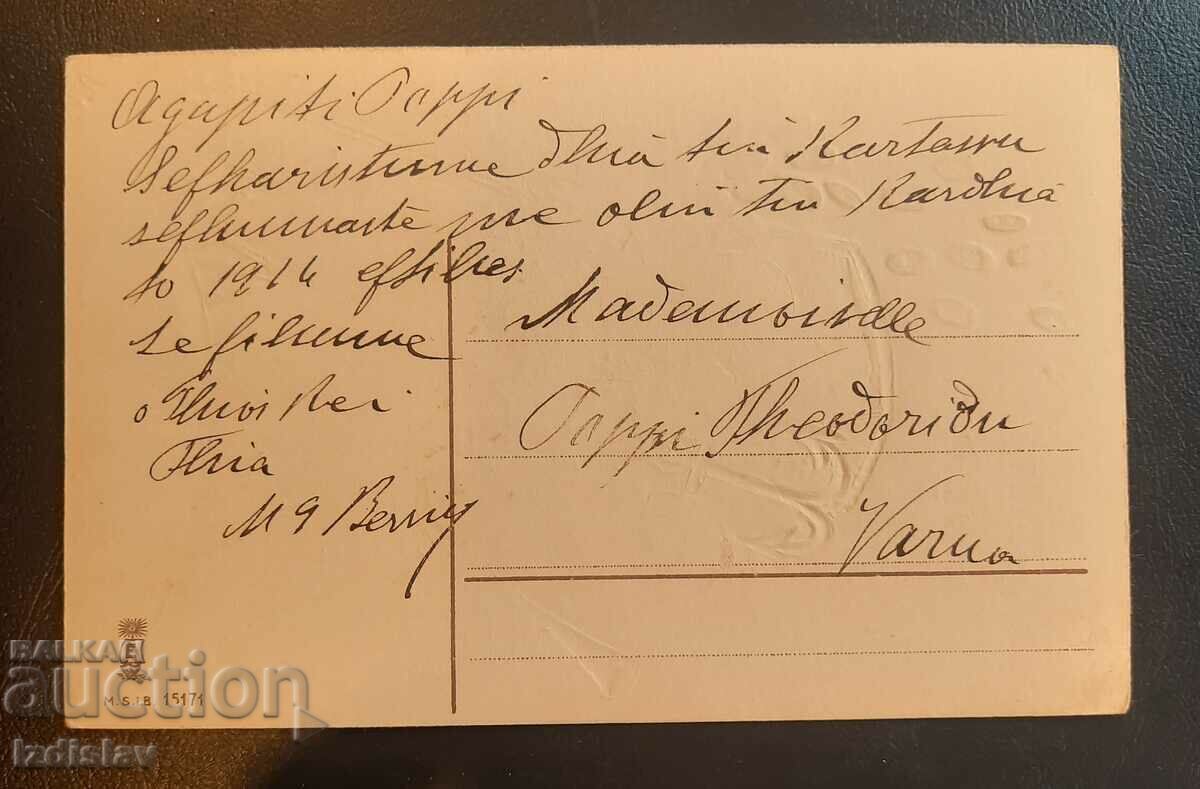 Agapiti Poppi
Sefkaristume dhia tin Kartassu
seflumaste me olin tin Kardhia
to 1914 eftihes
se filume
o Thios Kei
Thia
M G
Mademoiselle
Poppi Theodoridu
Varna
M.S.i.B. 15171
BALKAN
auction
Izdislav